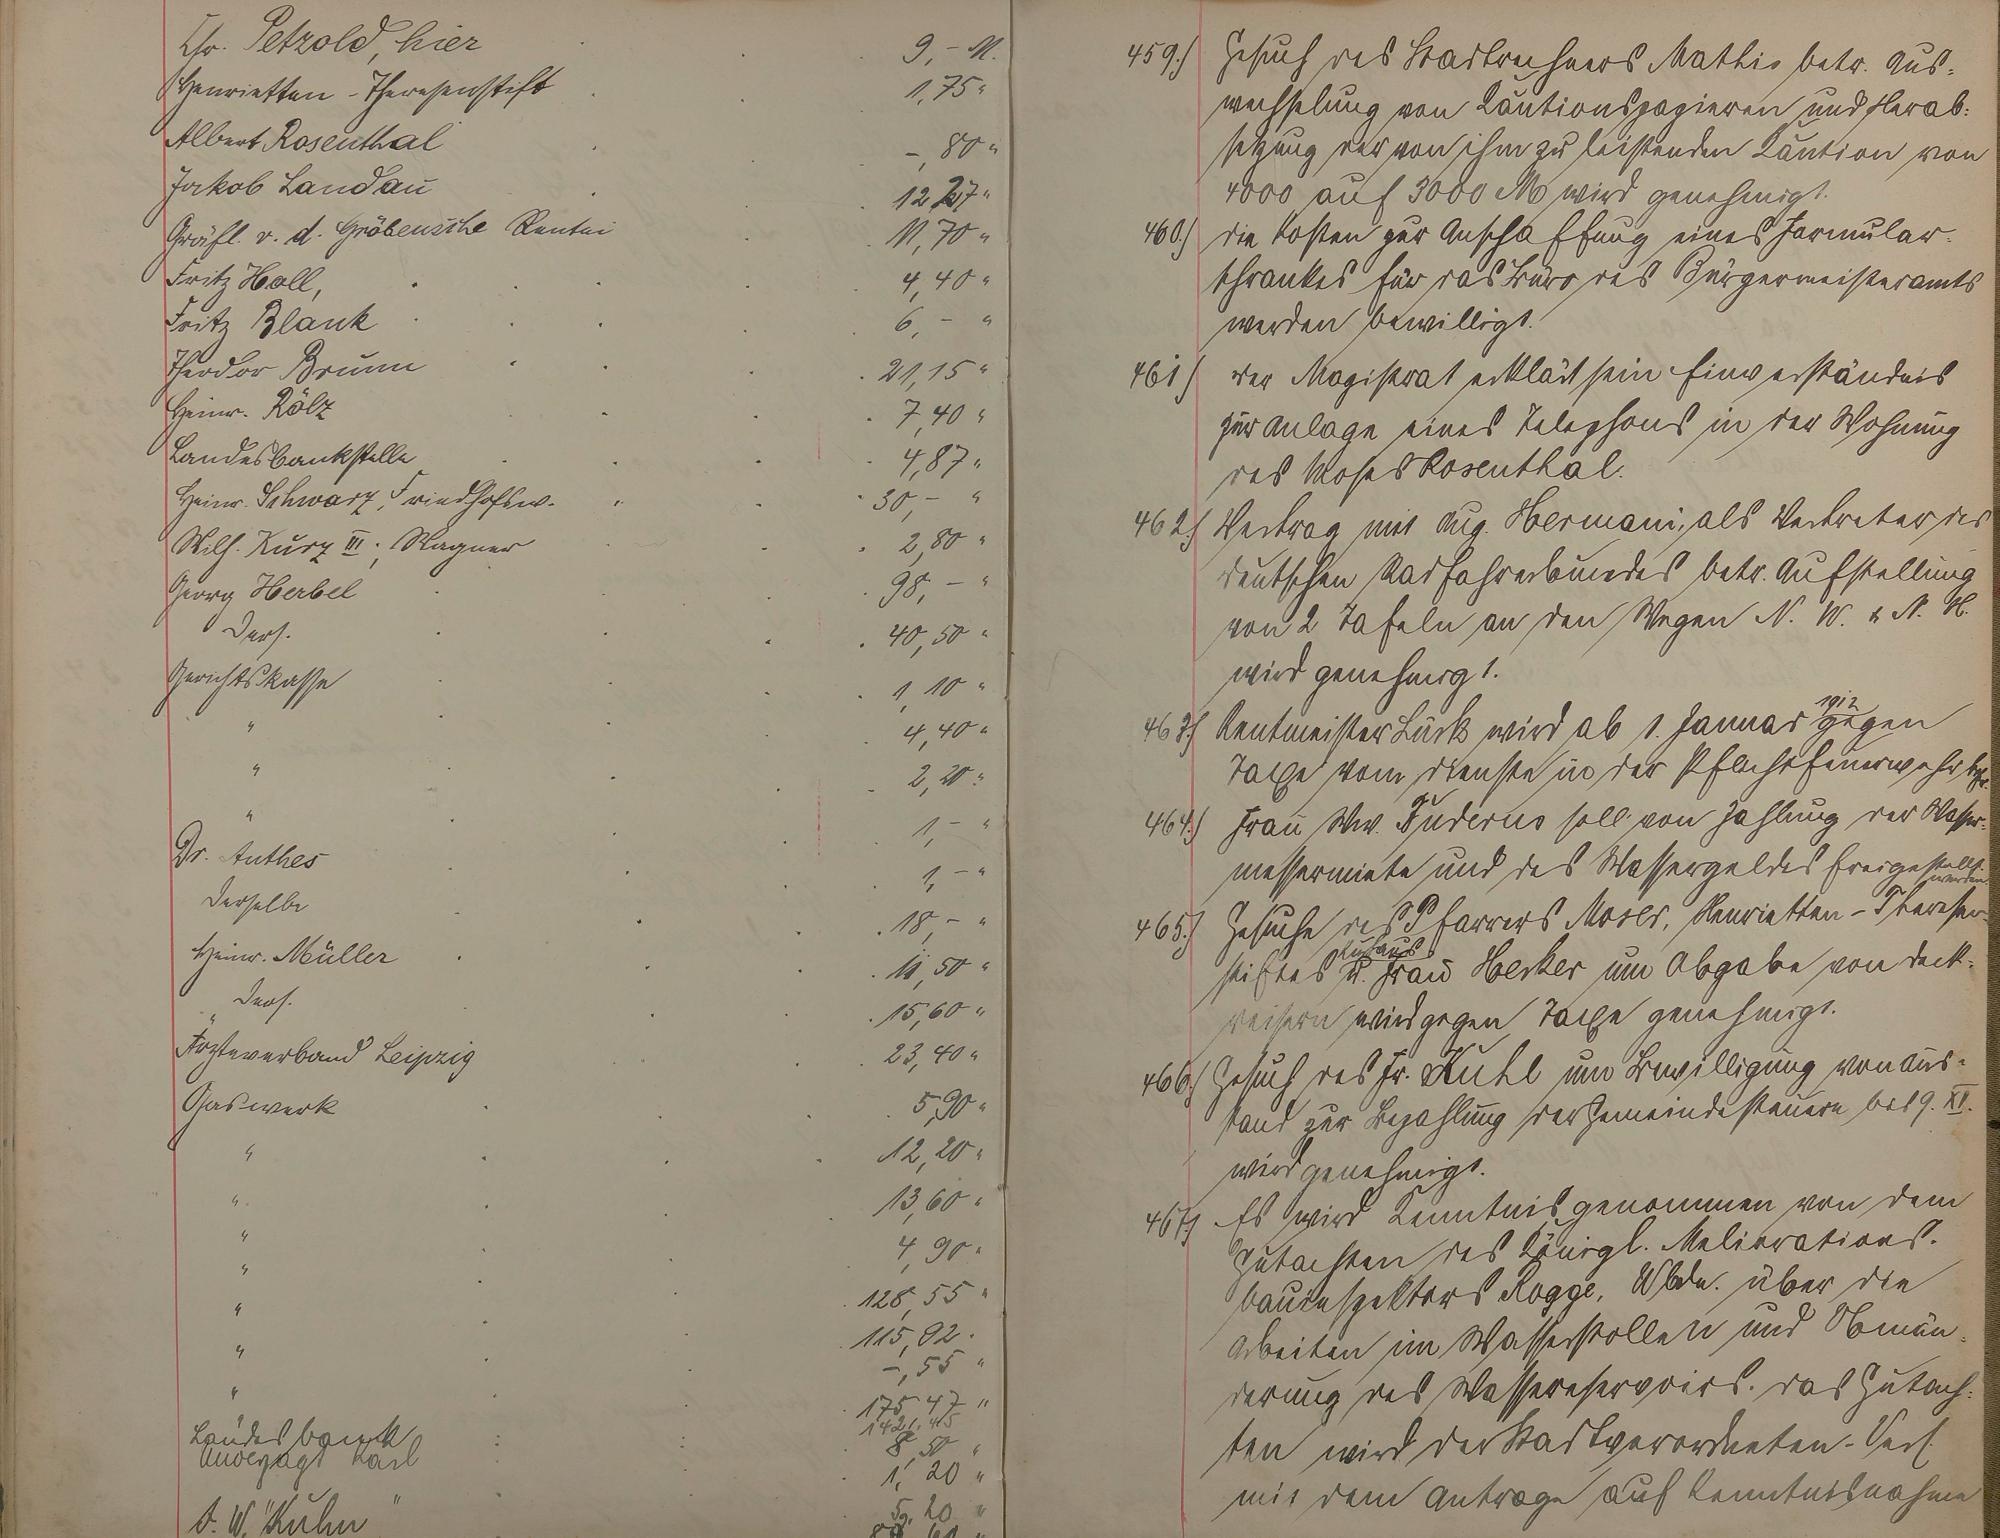 Chr. Petzold, hier 9,- M.
Henrietten-Theresenstift 1,75 "
Albert Rosenthal -,80 "
Jakob Landau 12,27 "
Gräfl. v. d. Gröbensche Rentei 11,70 "
Fritz Holl, 4,40 "
Fritz Blank 6,- "
Theodor Brumm 21,15 "
Heinr. Rölz 7,40 "
Landesbankstelle 4,87 "
Heinr. Schwarz, Friedhofsw. 30,- "
Wilh. Kurz III, Wagner 2,80 "
Georg Herbel 98,- "
Ders. 40,50 "
Gerichtskasse 1,10 "
" 4,40 "
" 2,20 "
" 1,- "
Dr. Anthes 1,- "
Derselbe 18,- "
Heinr. Müller 11,50 "
" Ders. 15,60 "
Ärzteverband Leipzig 23,40 "
Gaswerk 5,90 "
" 12,20 "
" 13,60 "
" 4,90 "
" 128,55 "
" 115,92 "
" -,55 "
" 175,47 "
Landesbank 8,50 "
Karl 1,20 "
Kuhn
459.) Gesuch des Stadtrechners Mathis betr. Aus-
wechselung von Kautionspapieren und Herab-
setzung der von ihm zu leistenden Kaution von
4000 auf 3000 M wird genehmigt.
460.) Die Kosten zur Anschaffung eines Formular-
schrankes für das Büro des Bürgermeisteramts
werden bewilligt.
461.) Der Magistrat erklärt sein Einverständnis
zur Anlage eines Telephons in der Wohnung
des Moses Rosenthal.
462.) Vertrag mit Aug. Hermani, als Vertreter des
deutschen Radfahrerbundes betr. Aufstellung
von 2 Tafeln an den Wegen N. W. & N. H.
wird genehmigt.
463.) Rentmeister Lück wird ab 1. Januar 1912 gegen
Taxe vom Dienste in der Pflichtfeuerwehr befr.
464.) Frau Ww. soll von Zahlung der Wasser-
messermiete und des Wassergeldes freigestellt werden.
465.) Gesuche des Pfarrers Moser, Henrietten-Theresen-
stiftes u. Frau Hecker um Abgabe von Deck-
reisern wird gegen Taxe genehmigt.
466.) Gesuch des Fr. Kuhl um Bewilligung von Aus-
stand zur Bezahlung der Gemeindesteuern bis 9. XI.
wird genehmigt.
467.) Es wird Kenntnis genommen von dem
Gutachten des Königl. Meliorations-
bauinspektors Rogge, Wbdn. über die
Arbeiten im Wasserstollen und
des Wasserreservoirs. Das Gutach-
ten wird der Stadtverordneten-Vers.
mit dem Antrage auf Kenntnisnahme